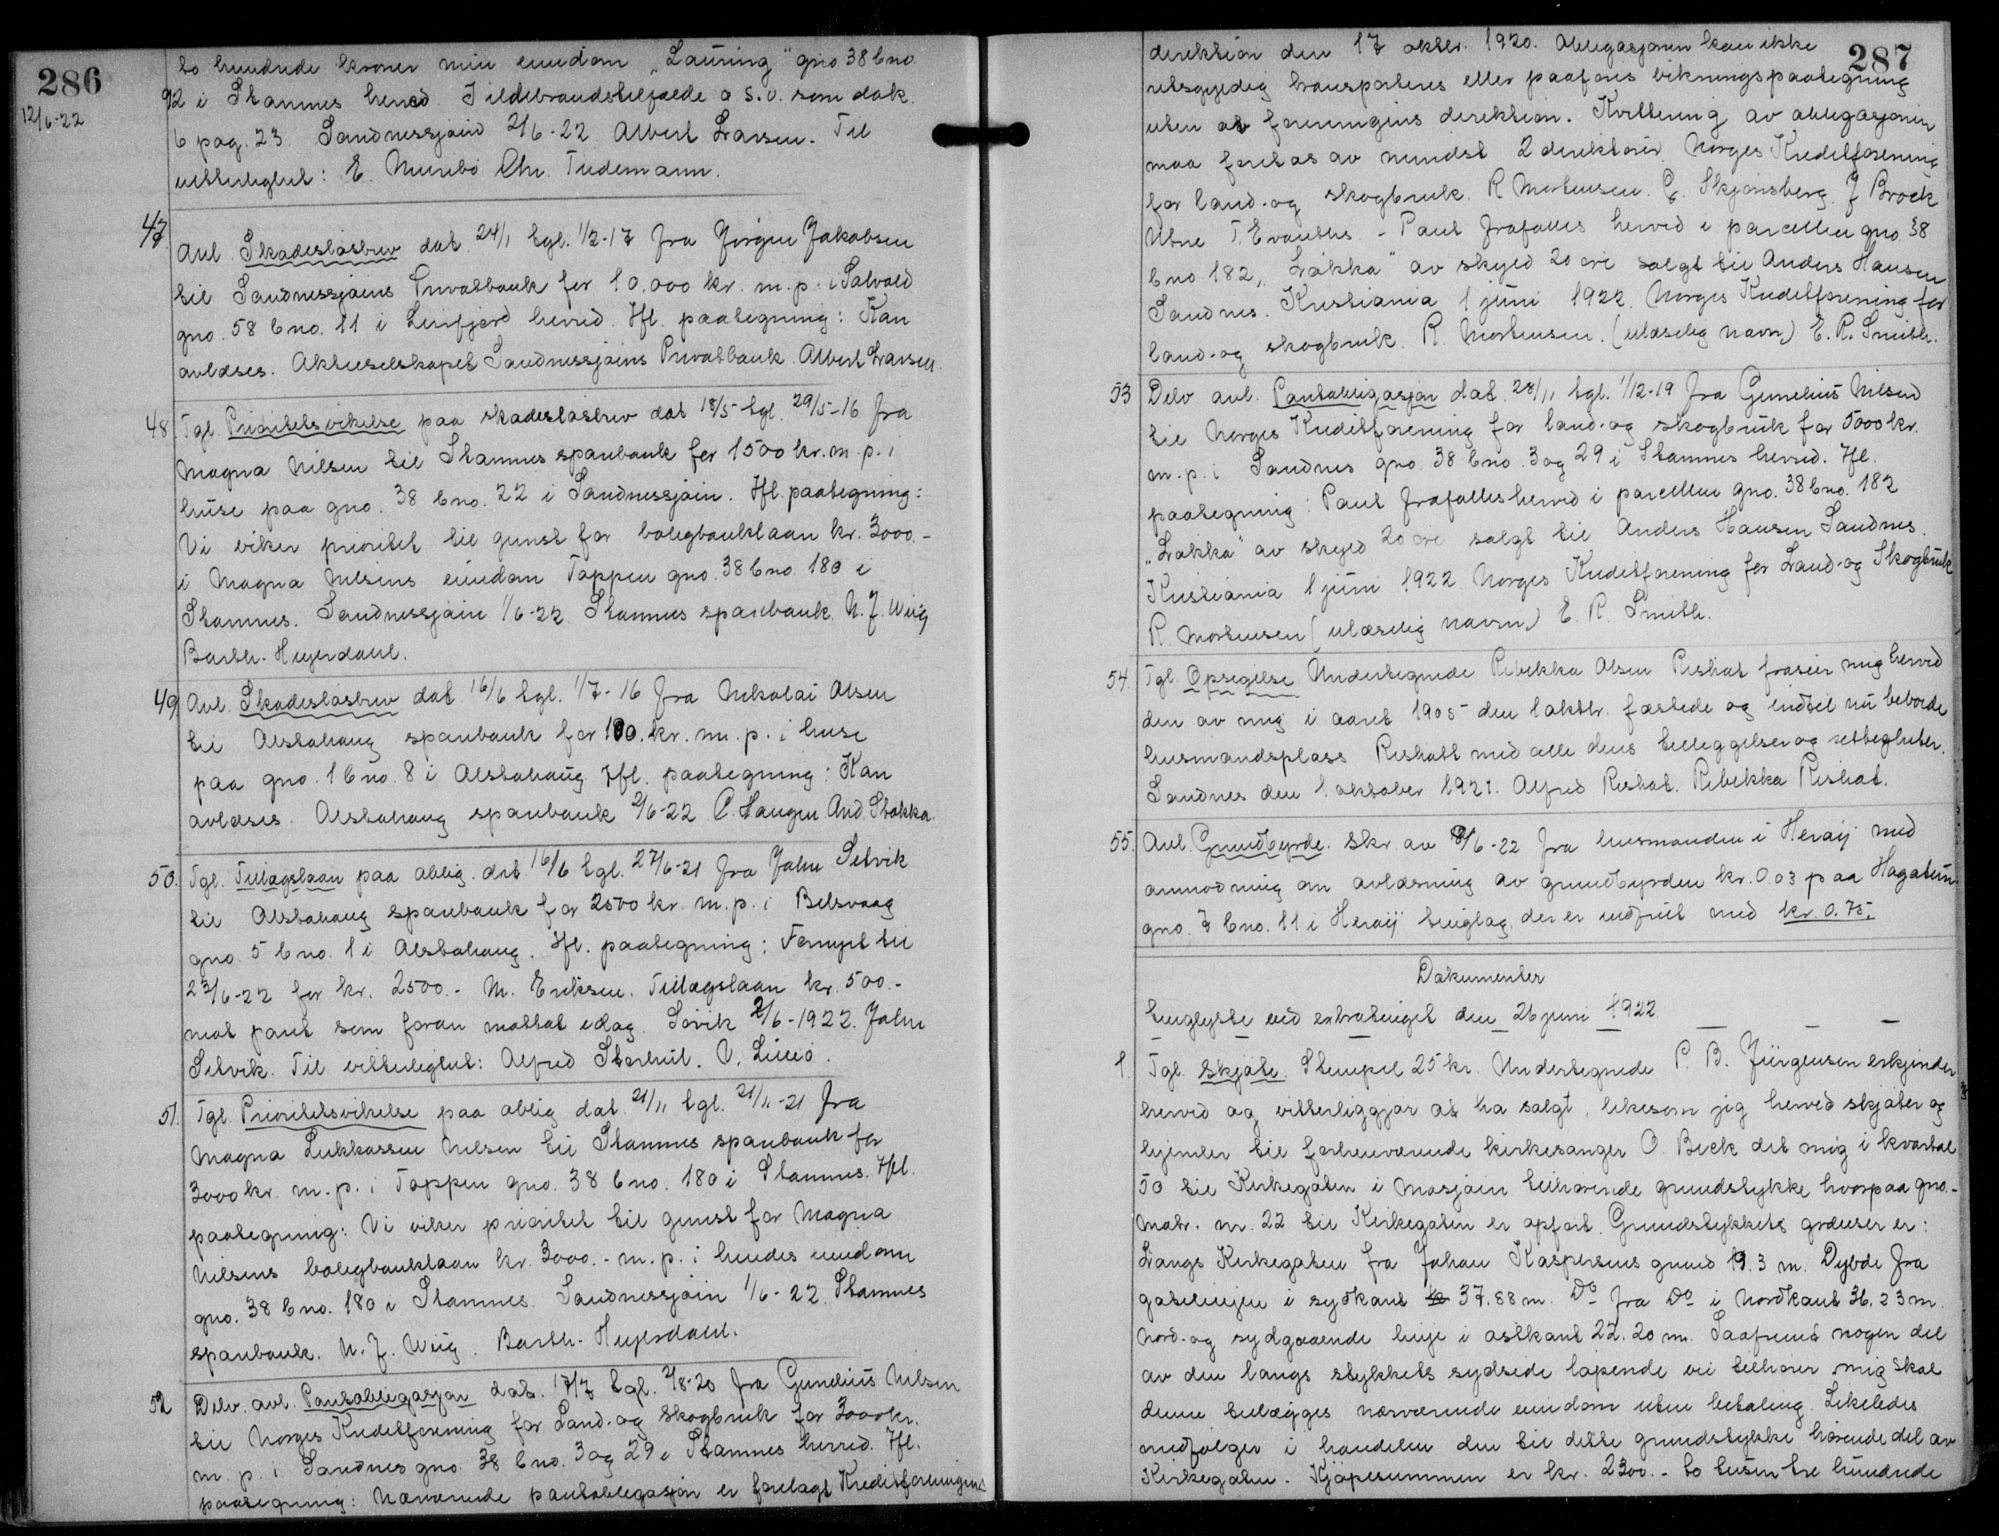 286
12/6-22
to hundrede kroner min eiendom „Lauring" gno 38 bno
92 i Stamnes herred. I ildebrandstilfælde o s.v. som dok.
6 pag. 23. Sandnessjøen 2/6-22 Albert Larsen. Til
vitterlighet: E. Chr. Tidemann.
47. Avl. Skadesløsbrev dat 24/1 tgl. 1/2-17 fra Jørgen Jakobsen
til Sandnessjøens Privatbank for 10,000 kr. m.p. i Salvold
gno. 58 bno. 11 i Leirfjord herred. Hfl. paategning: Kan
avlæses. Aktieselskapet Sandnessjøens Privatbank Albert Larsen.
48. Tgl. Prioritetsvikelse paa skadesløsbrev dat 18/5 tgl. 29/5-16 fra
Magna Nilsen til Stamnes sparebank for 1500 kr. m. p. i
huse paa gno. 38 bno. 22 i Sandnessjøen. Hfl. paategning:
Vi viker prioritet til gunst for boligbanklaan kr. 3000.-
i Magna Nilsens eiendom Toppen gno. 38 bno. 180 i
Stamnes. Sandnessjøen 1/6-22 Stamnes sparebank. N. J. Wiig
Barth. Heyerdahl.
49 Avl. Skadesløsbrev dat 16/6 tgl. 1/7-16 fra Nikolai Olsen
til Alstahaug sparebank for 100. kr. m. p. i huse
paa gno. 1 bno. 8 i Alstahaug. Hfl. paategning: Kan
avlæses. Alstahaug sparebank 2/6-22 O. Haugen And. Stokka.
50. Tgl. Tillægslaan paa oblig. dat 16/6 tgl. 27/6-21 fra John Selvik
til Alstahaug sparebank for 2500 kr. m. p. i Belsvaag
gno. 5 bno. 1 i Alstahaug. Hfl. paategning: Fornyet til
23/6-22 for kr. 2500.- M. Eriksen. Tillægslaan kr. 500.-
mot pant som foran mottat idag. Søvik 2/6-1922. John
Selvik. Til vitterlighet: Alfred V.
51. Tgl. Prioritetsvikelse paa oblig dat. 21/11 tgl. 21/11-21 fra
Magna Lukkassen Nilsen til Stamnes sparebank for
3000 kr. m. p. i Toppen gno. 38 bno. 180 i Stamnes. Hfl.
paategning: Vi viker prioritet til gunst for Magna
Nilsens boligbanklaan kr. 3000.- m. p. i hendes eiendom
gno. 38 bno. 180 i Stamnes. Sandnessjøen 1/6-22. Stamnes
sparebank. N. J. Wiig. Barth. Heyerdahl.
52 Delv. avl. Pantobligasjon dat. 17/7 tgl. 2/8-20 fra Gunelius Nilsen
til Norges Kreditforening for Land- og Skogbruk for 3000 kr.
m. p. i Sandnes gno. 38 bno. 3 og 29 i Stamnes herred. Hfl.
paategning: Nærværende pantobligasjon er forelagt Kreditforeningens
287
direktion den 17 oktbr. 1920. Obligasjonen kan ikke
retsgyldig transporteres eller paaføres vikningspaategning
uten av foreningens direktion. Kvittering av obligasjonen
maa foretas av mindst 2 direktører. Norges Kreditforening
for land- og skogbruk. R Mortensen. C. Skjønsberg J Brock
Utne T. - Pant frafalles herved i parcellen gno. 38
bno. 182, „Løkka" av skyld 20 øre solgt til Anders Hansen
Sandnes. Kristiania 1 juni 1922. Norges Kreditforening for
land- og skogbruk. R. Mortensen. (ulæselig navn) E. R. Smith.
53 Delv avl. Pantobligasjon dat. 28/11 tgl. 1/12-19 fra Gunelius Nilsen
til Norges Kreditforening for land- og skogbruk for 5000 kr.
m. p. i Sandnes gno. 38 bno. 3 og 29 i Stamnes herred. Hfl.
paategning: Pant frafalles herved i parcellen gno. 38 bno. 182
„Løkka" av skyld 20 øre solgt til Anders Hansen Sandnes.
Kristiania 1 juni 1922 Norges Kreditforening for Land- og Skogbruk
R. Mortensen (ulæselig navn) E. R. Smith.
54. Tgl. Opsigelse Undertegnede Rebekka Olsen Reshat frasier mig herved
den av mig i aaret 1905 den 1 oktbr. fæstede og indtil nu beboede
husmandsplass Reshatt med alle dens tilleggelser og rettegheter.
Sandnes den 1. oktober 1921. Alfred Reshat. Rebekka Reshat.
55. Avl. Grundbyrde. Skr. av 8/6-22 fra lensmanden i Herøy med
anmodning om avlæsning av grundbyrden kr. 0.03 paa Hagatun
gno. 7 bno. 11 i Herøy tinglag, der er indfriet med kr. 0.75.
Dokumenter
tinglyste ved extratinget den 26 juni 1922
1. Tgl. Skjøte. Stempel 25 kr. Undertegnede P. B. Jürgensen erkjender
herved og vitterliggjør at ha solgt, likesom jeg herved skjøter og
hjemler til forhenværende kirkesanger O. Bech det mig i kvartal
To til Kirkegaten i Mosjøen tilhørende grundstykke hvorpaa gno.-
matr. nr. 22 til Kirkegaten er opført. Grundstykkets grænser er:
Langs Kirkegaten fra Johan Kaspersens grund 19.3 m. Dybde fra
gatelinjen i sydkant 37.88 m. Do fra Do i Nordkant 36.23 m.
Nord- og sydgaaende linje i østkant 22.20 m. Saafremt nogen del
av den langs stykkets sydside løpende vei tilhører mig skal
denne tillægges nærværende eiendom uten betaling. Likeledes
medfølger i handelen den til dette grundstykke hørende del av
Kirkegaten. Kjøpesummen er kr. 2300.- to tusen tre hundrede